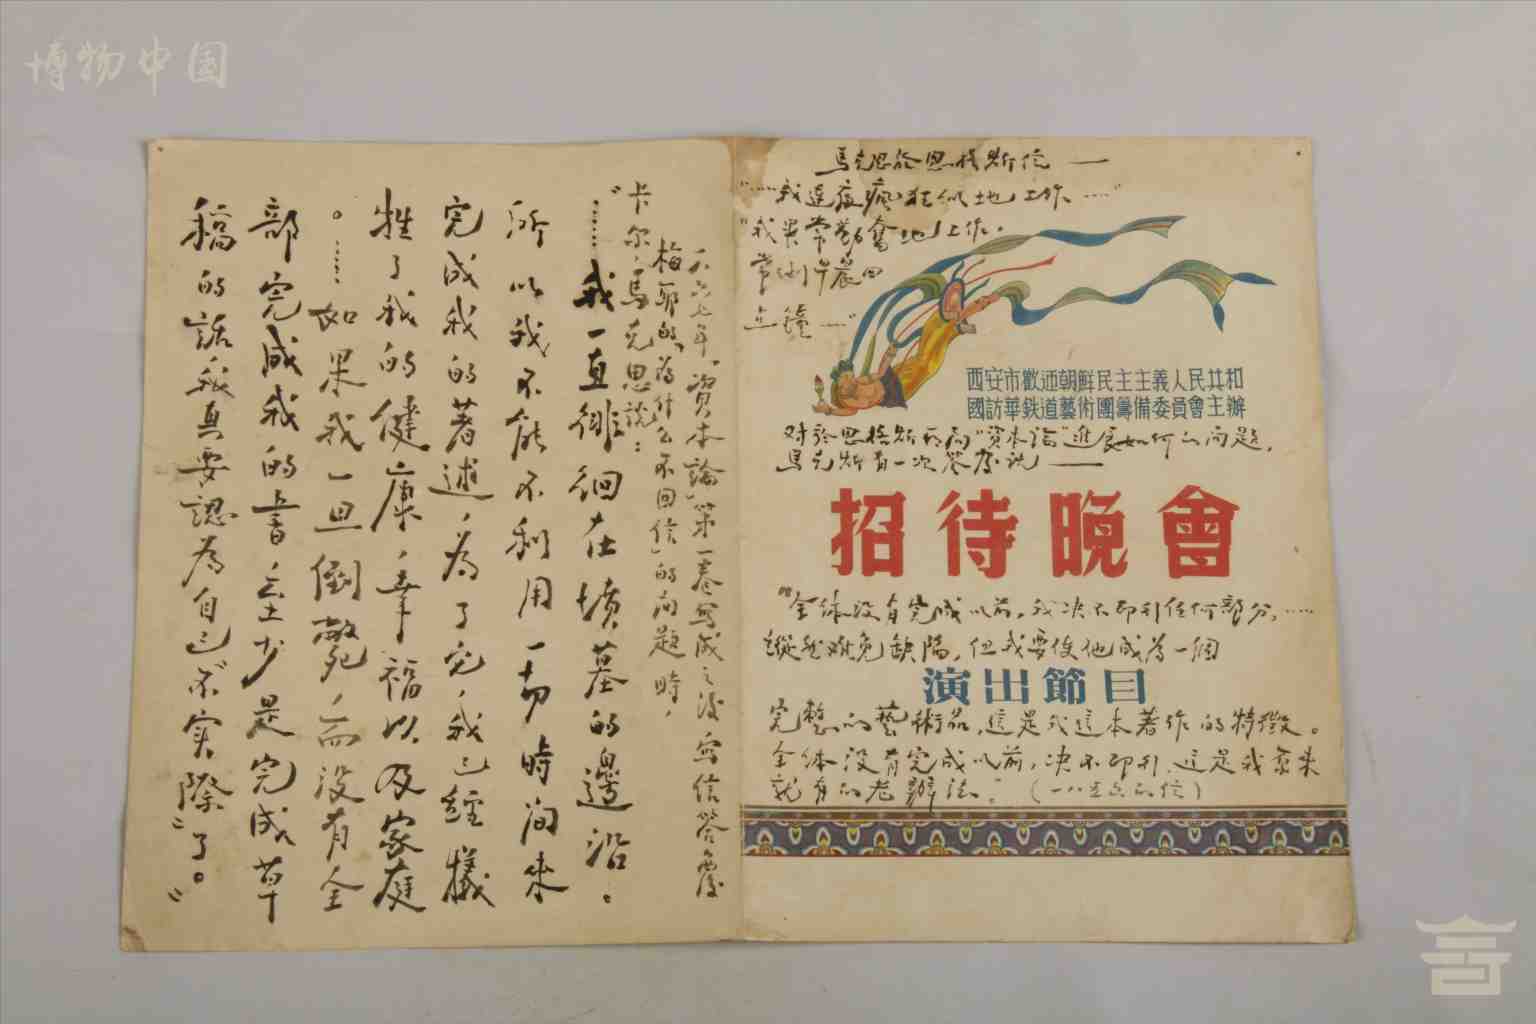 博物中国
馬克思給恩格斯信——
"……我連夜瘋狂似地工作……"
"我異常勤奮地工作。
常到早晨四
点鐘……"
西安市歡迎朝鮮民主主義人民共和
國訪華鉄道藝術團籌備委員會主辦
对於恩格斯所问"資本論"進展如何的问題，
馬克斯有一次答彦說——
招待晚會
"全体没有完成以前，我决不即刊任何部分，……
縱然难免缺陷，但我要使他成為一個
演出節目
完整的藝術品，這是我這本著作的特徵。
全体没有完成以前，决不即刊，這是我素来
就有的老辦法。"（一八五 的信）
一八六七年「資本論」第一卷寫成之後寫信答覆
梅耶的「為什么不回信」的问題時，
卡尔·馬克思說：
"……我一直徘徊在墳墓的邊沿。
所以我不能不利用一切時间來
完成我的著述，為了它，我已經犧
牲了我的健康，幸福以及家庭
。……如果我一旦倒斃，而没有全
部完成我的書，至少是完成草
稿的話我真要認為自己"不实際"了。"